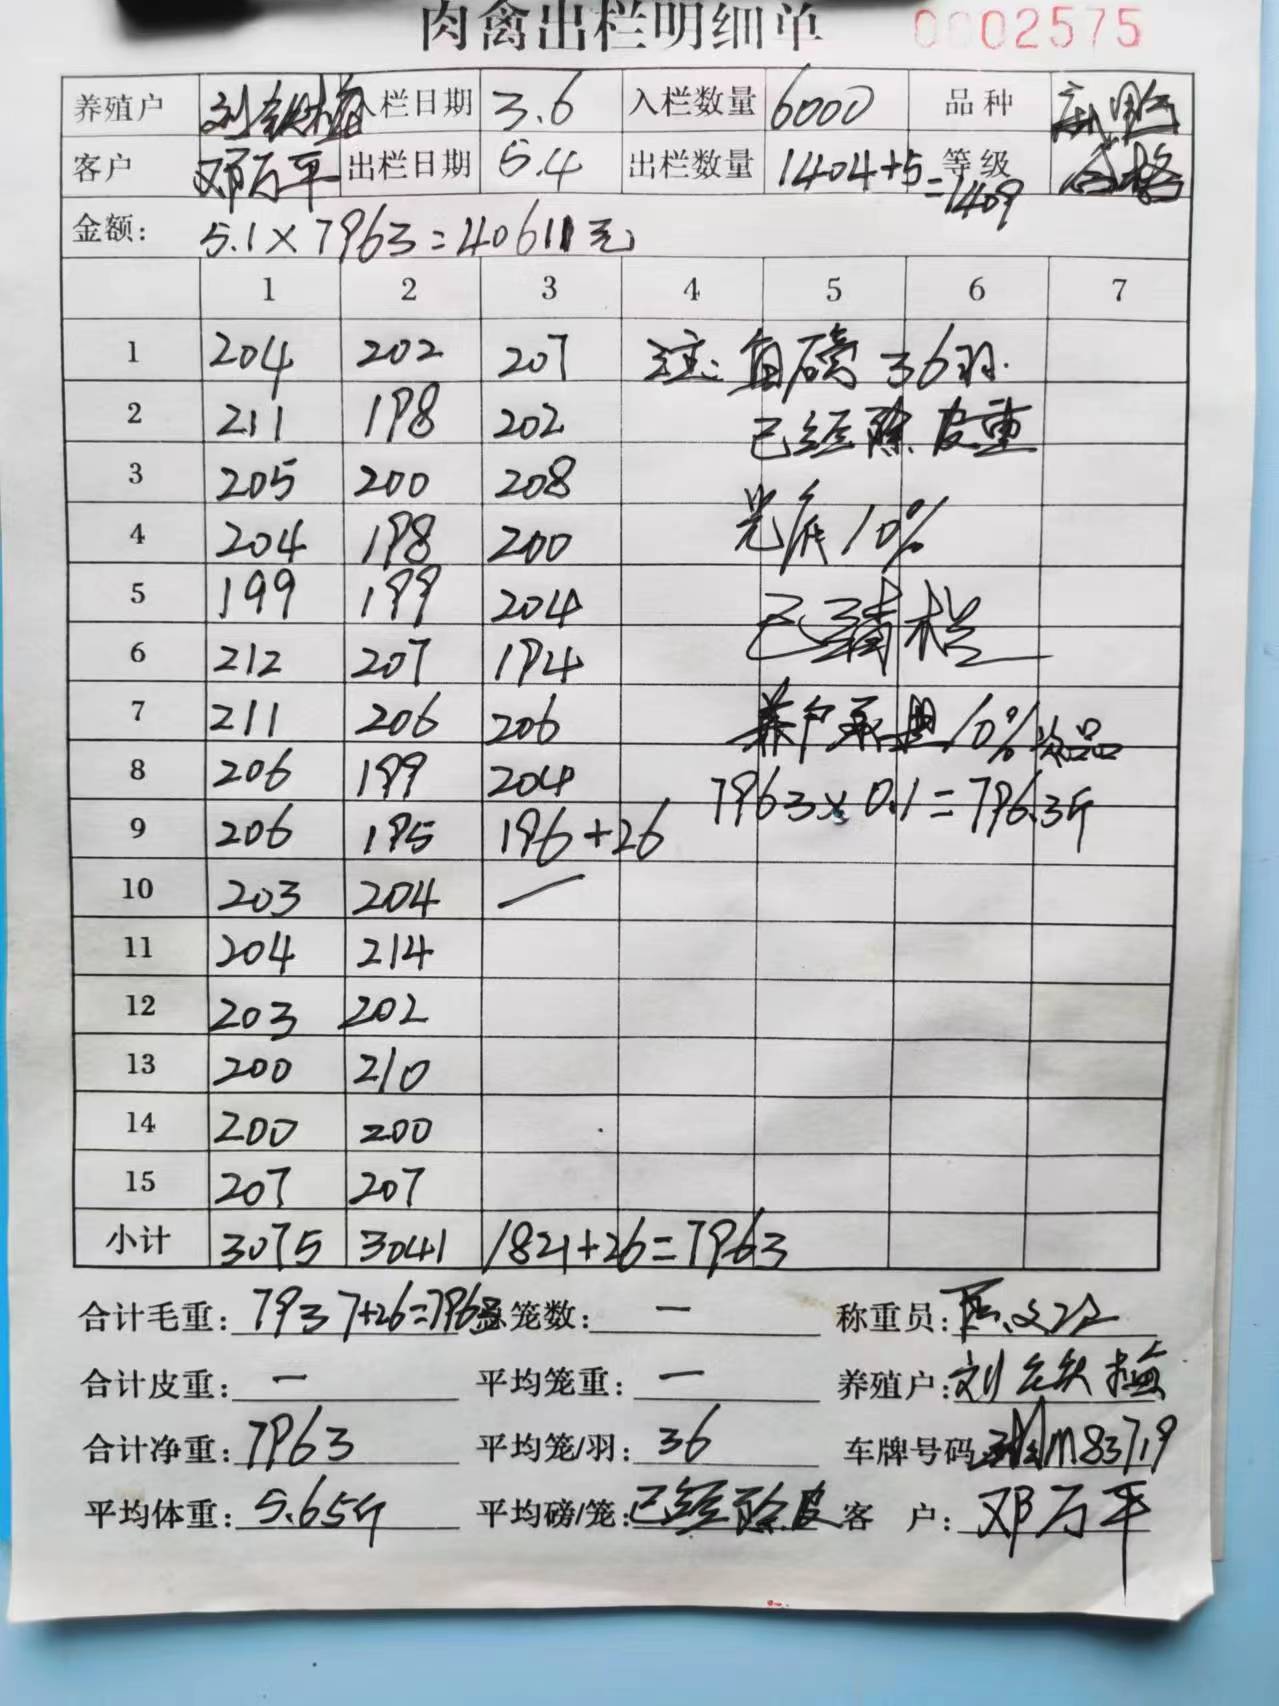 肉禽出栏明细单 0002575
养殖户 刘铁梅 入栏日期 3.6 入栏数量 6000 品种
客户 邓万平 出栏日期 5.4 出栏数量 1404+5=1409 等级 合格
金额: 5.1×7963=40611元
1 2 3 4 5 6 7
1 204 202 207 注: 每磅36羽.
2 211 198 202 已经除皮重
3 205 200 208
4 204 198 200 光底10%
5 199 199 204 已清栏
6 212 207 194
7 211 206 206 养户承担10%次品
8 206 199 204 7963×0.1=796.3斤
9 206 195 196+26
10 203 204 —
11 204 214
12 203 202
13 200 210
14 200 200
15 207 207
小计 3075 3041 1821+26=7963
合计毛重: 7937+26=7963 笼数: — 称重员:
合计皮重: — 平均笼重: — 养殖户: 刘铁梅
合计净重: 7963 平均笼/羽: 36 车牌号码 M83719
平均体重: 5.65斤 平均磅/笼: 已经除皮 客 户: 邓万平